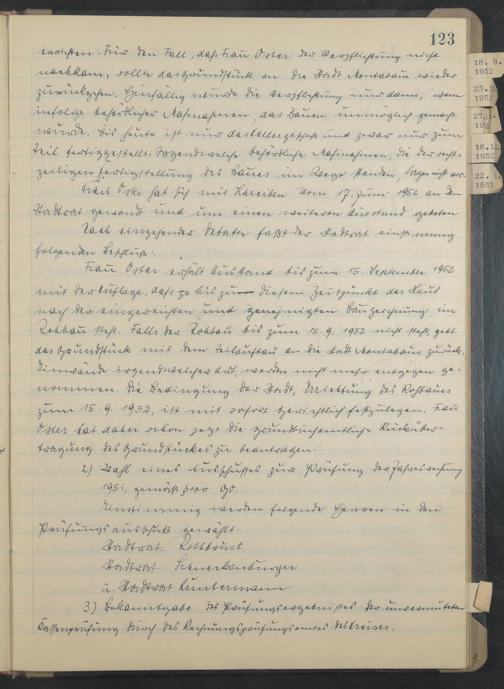 123
errichten. Für den Fall, daß Frau Oster der Verpflichtung nicht
nachkam, sollte das Grundstück an die Stadt Montabaur wieder
zurückgehen. Hinfällig würde die Verpflichtung nur dann, wenn
infolge behördlicher Maßnahmen, das Bauen unmöglich gemacht
würde. Bis heute ist nur das Kellergeschoß und zwar nur zum
Teil fertiggestellt. Irgendwelche behördliche Maßnahmen, die der recht-
zeitigen Fertigstellung des Baues im Wege standen, lagen nicht vor.
Frau Oster hat sich mit Schreiben vom 17. Juni 1952 an den
Stadtrat gewandt und um einen weiteren Ausstand gebeten
Nach eingehender Debatte faßt der Stadtrat einstimmig
folgenden Beschluß:
Frau Oster erhält Ausstand bis zum 15. September 1952
mit der Auflage, daß bis zu diesem Zeitpunkt das Haus
nach der eingereichten und genehmigten Bauzeichnung im
Rohbau steht. Falls der Rohbau bis zum 15.9.1952 nicht steht, geht
das Grundstück mit dem Teilaufbau an die Stadt Montabaur zurück.
Einwände irgendwelcher Art werden nicht mehr entgegen ge-
nommen. Die Bedingung der Stadt, Errichtung des Rohbaues
zum 15.9.1952, ist mit sofort gerichtlich festzulegen. Frau
Oster hat daher schon jetzt die grundbuchamtliche Rücküber-
tragung des Grundstückes zu beantragen.
2) Wahl eines Ausschußes zur Prüfung der Jahresrechnung
1951, gemäß § 100 GO
Einstimmig werden folgende Herren in den
Prüfungsausschuß gewählt.
Stadtrat
Stadtrat
u. Stadtrat
3) Bekanntgabe des Prüfungsergebnisses der unvermuteten
Kassenprüfung durch das Rechnungsprüfungsamt des Kreises.
18. 9.
1952
18. 11.
1952
22.
1953